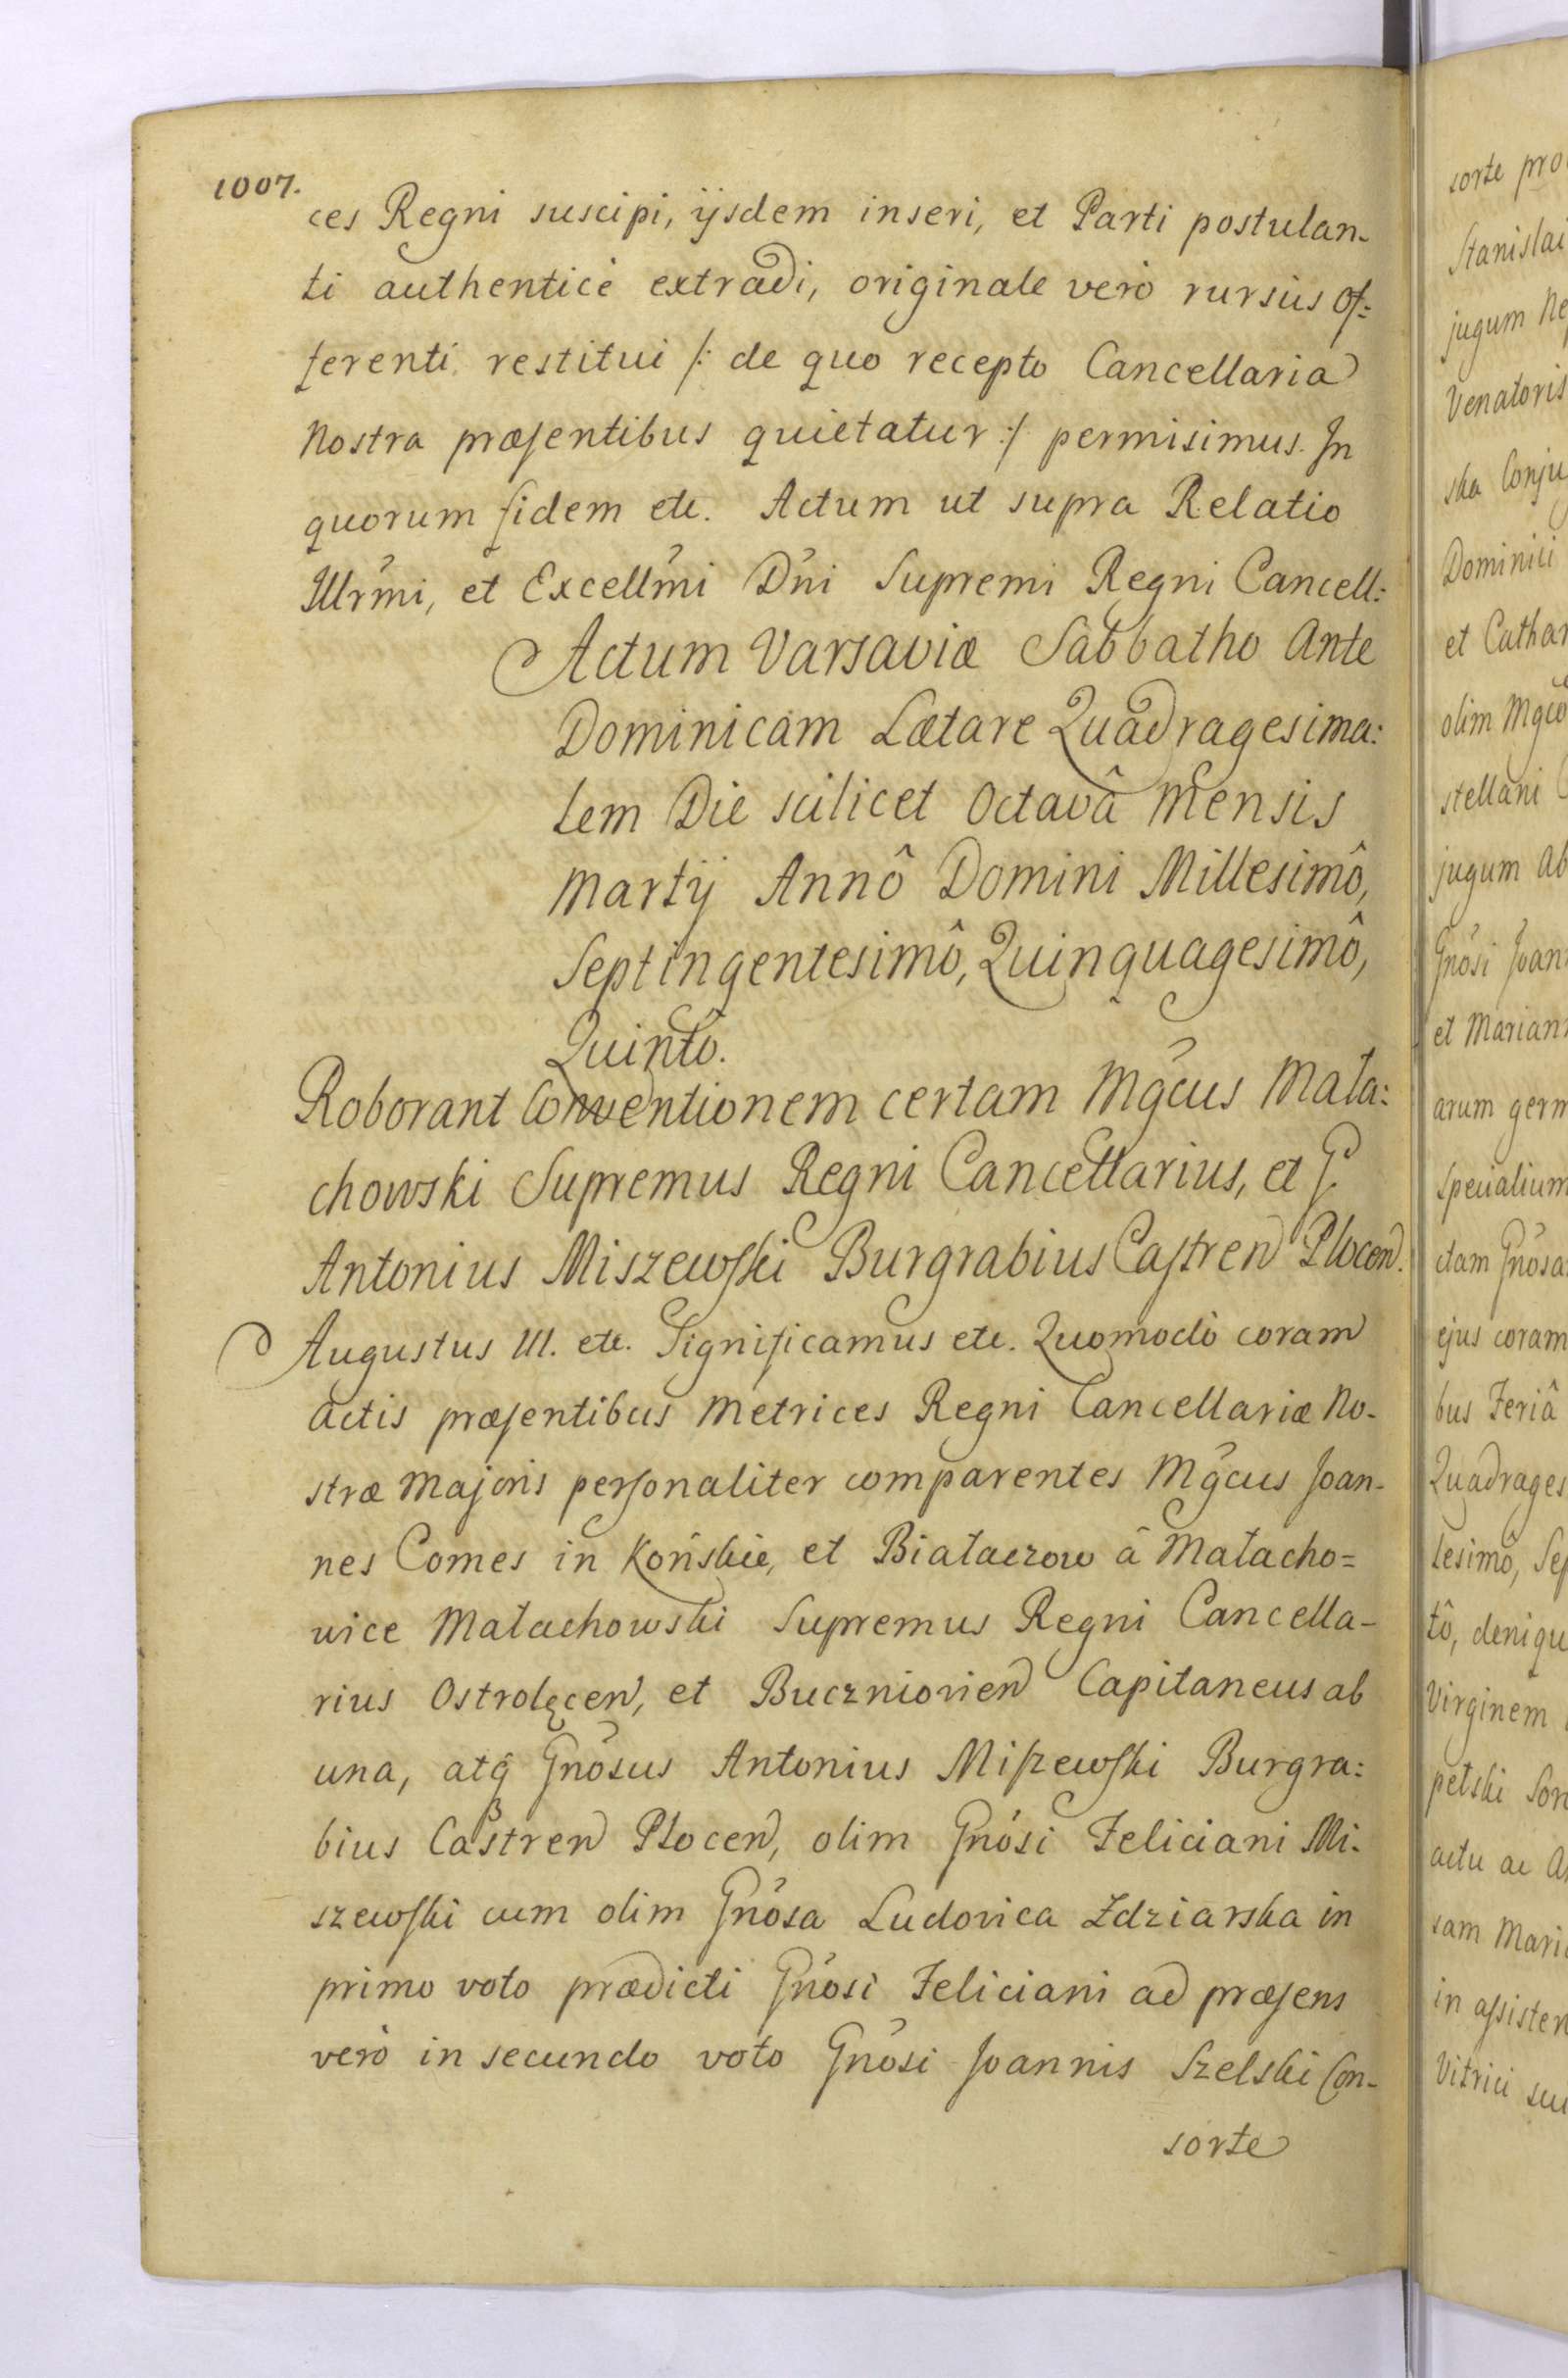 1007.
ces Regni suscipi, ijsdem inseri, et Parti postulan-
ti authenticè extradi, originale verò rursùs of:
ferenti restitui /: de quo recepto Cancellaria
Nostra præsentibus quietatur :/ permisimus. In
quorum fidem etc. Actum ut supra Relatio
Illrm̃i, et Excellm̃i Dñi Supremi Regni Cancell:
Actum Varsaviæ Sabbatho Ante
Dominicam Lætare Quadragesima:
lem Die scilicet Octavâ Mensis
Martij Annô Domini Millesimô,
Septingentesimô, Quinquagesimô,
Quintô.
Roborant Conventionem certam Mgcus Mała:
chowski Supremus Regni Cancellarius, et G.
Antonius Miszewski Burgrabius Castren Plocen.
Augustus III. etc. Significamus etc. Quomodò coram
Actis præsentibus Metrices Regni Cancellariæ No-
stræ Majoris personaliter comparentes Mgcus Joan-
nes Comes in Końskie, et Białaczow â Małacho=
wice Małachowski Supremus Regni Cancella-
rius Ostrołęcen, et Buczniovien Capitaneus ab
una, atq̃ Gnõsus Antonius Miszewski Burgra:
bius Castren Plocen, olim Gnõsi Feliciani Mi:
szewski cum olim Gnõsa Ludovica Zdziarska in
primo voto prædicti Gnõsi Feliciani ad præsens
verò in secundo voto Gnõsi Joannis Szelski Con-
sorte
sorte pro
Stanislai
jugum Ne
Venatoris
ska Conju
Dominici
et Cathar
olim Mgco
stellani
jugum ab
Gnõsi Joan
et Mariann
arum germ
specialium
ctam Gnõsa
ejus coram
bus Feriâ
Quadrages
lesimô, Sep
tô, deniqu
Virginem
petski Sor
actu ac A
sam Mari
in assisten
Vitrici sui